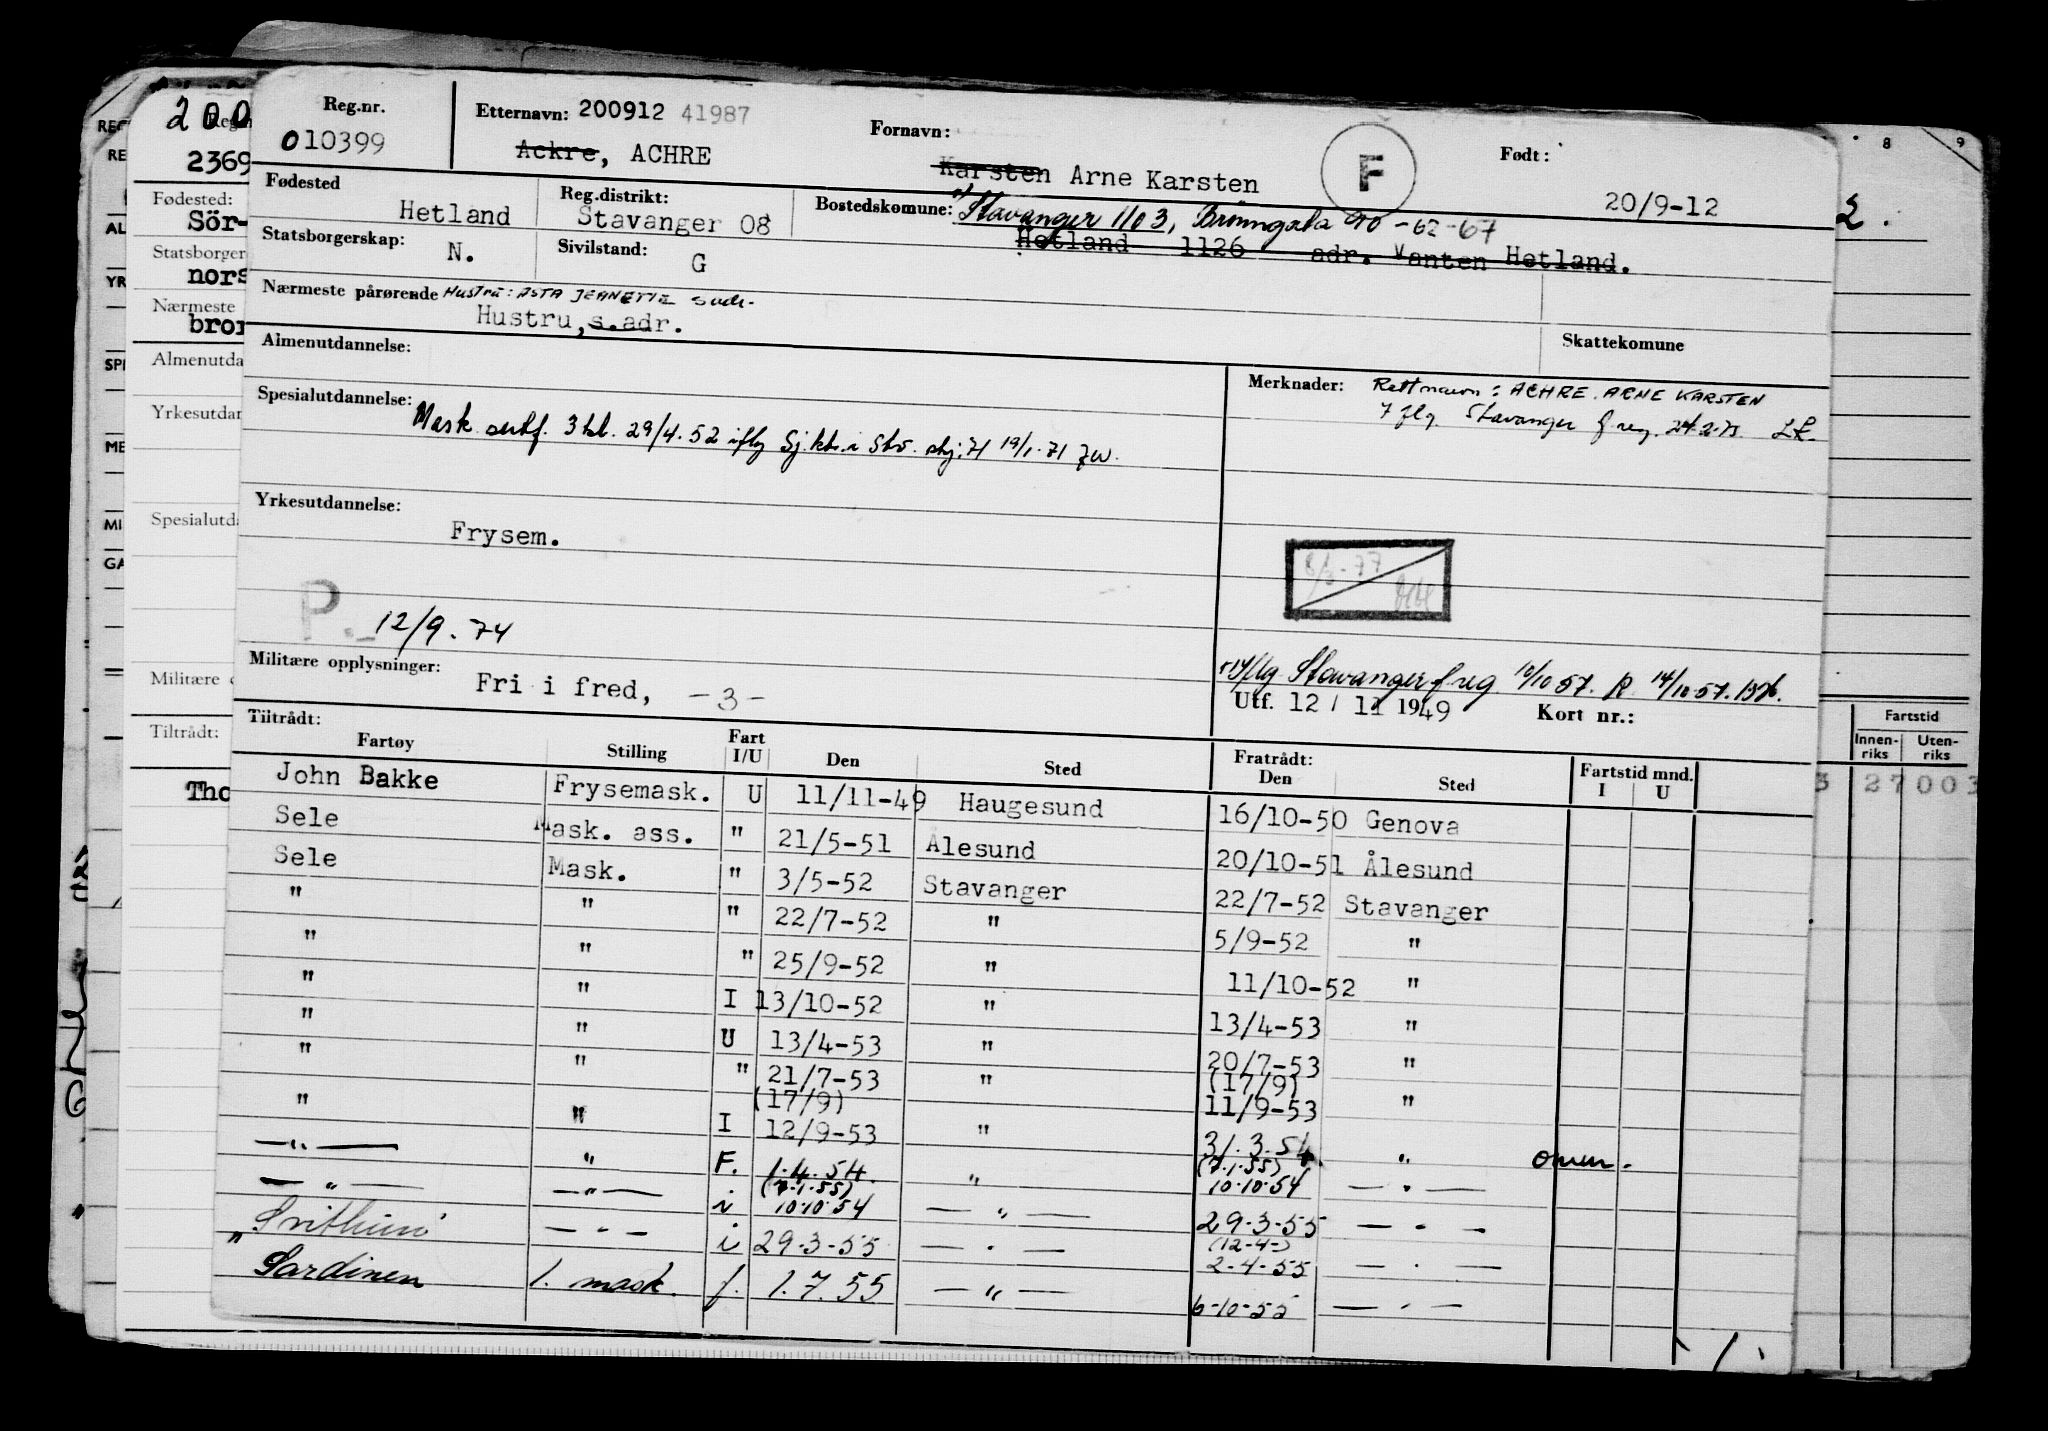 Reg.nr. Etternavn: 200912 41987 Fornavn: Født:
010399 Ackre, ACHRE Karsten Arne Karsten F 20/9-12
Fødested Reg.distrikt: Bostedskomune: Stavanger 1103, 90 -62-67
Hetland Stavanger 08 Hetland 1126 adr. Vanten Hetland.
Statsborgerskap: N. Sivilstand: G
Nærmeste pårørende Hustru: ASTA JEANETTE
Hustru, s.adr.
Almenutdannelse: Skattekomune
Spesialutdannelse: Merknader: Rett navn: ACHRE ARNE KARSTEN
Mask. sertf. 3 kl. 29/4.52 iflg Sj.ktr. i 19/1-71
Stavanger f reg. 24.2.75
Yrkesutdannelse:
Frysem.
8/3-77
P.- 12/9.74
Militære opplysninger: Fri i fred, -3-
iflg Stavanger f reg 10/10 57. R 14/10-57.
Utf. 12 / 11 1949 Kort nr.:
Tiltrådt: Fratrådt: Fartstid mnd.
Fartøy Stilling Fart I/U Den Sted Den Sted I U
John Bakke Frysemask. U 11/11-49 Haugesund 16/10-50 Genova
Sele Mask. ass. " 21/5-51 Ålesund 20/10-51 Ålesund
Sele Mask. " 3/5-52 Stavanger 22/7-52 Stavanger
" " " 22/7-52 " 5/9-52 "
" " " 25/9-52 " 11/10-52 "
" " I 13/10-52 " 13/4-53 "
" " U 13/4-53 " 20/7-53 "
" " " 21/7-53 " (17/9) 11/9-53 "
" " I (17/9) 12/9-53 " 31.3.54 "
—"— " F. 1.4.54 " (7.1.55) 10.10.54 —"—
—"— —"— i (7.1.55) 10.10.54 —"— 29.3-55 —"—
"Svithun" —"— i 29.3-55 —"— (12-4-) 2-4-55 —"—
Sardinen 1. mask. f. 1.7.55 —"— 6-10-55 —"—
200
2369
Fødested:
Sör-
Statsborger
nors
Nærmeste
bror
Almenutda
Yrkesutdan
Spesialutda
Militære
Tiltrådt:
Tho
REG
RE
AL
YR
SPE
ME
MI
GA
8 9
2.
Fartstid
Innen-riks Uten-riks
3 27003